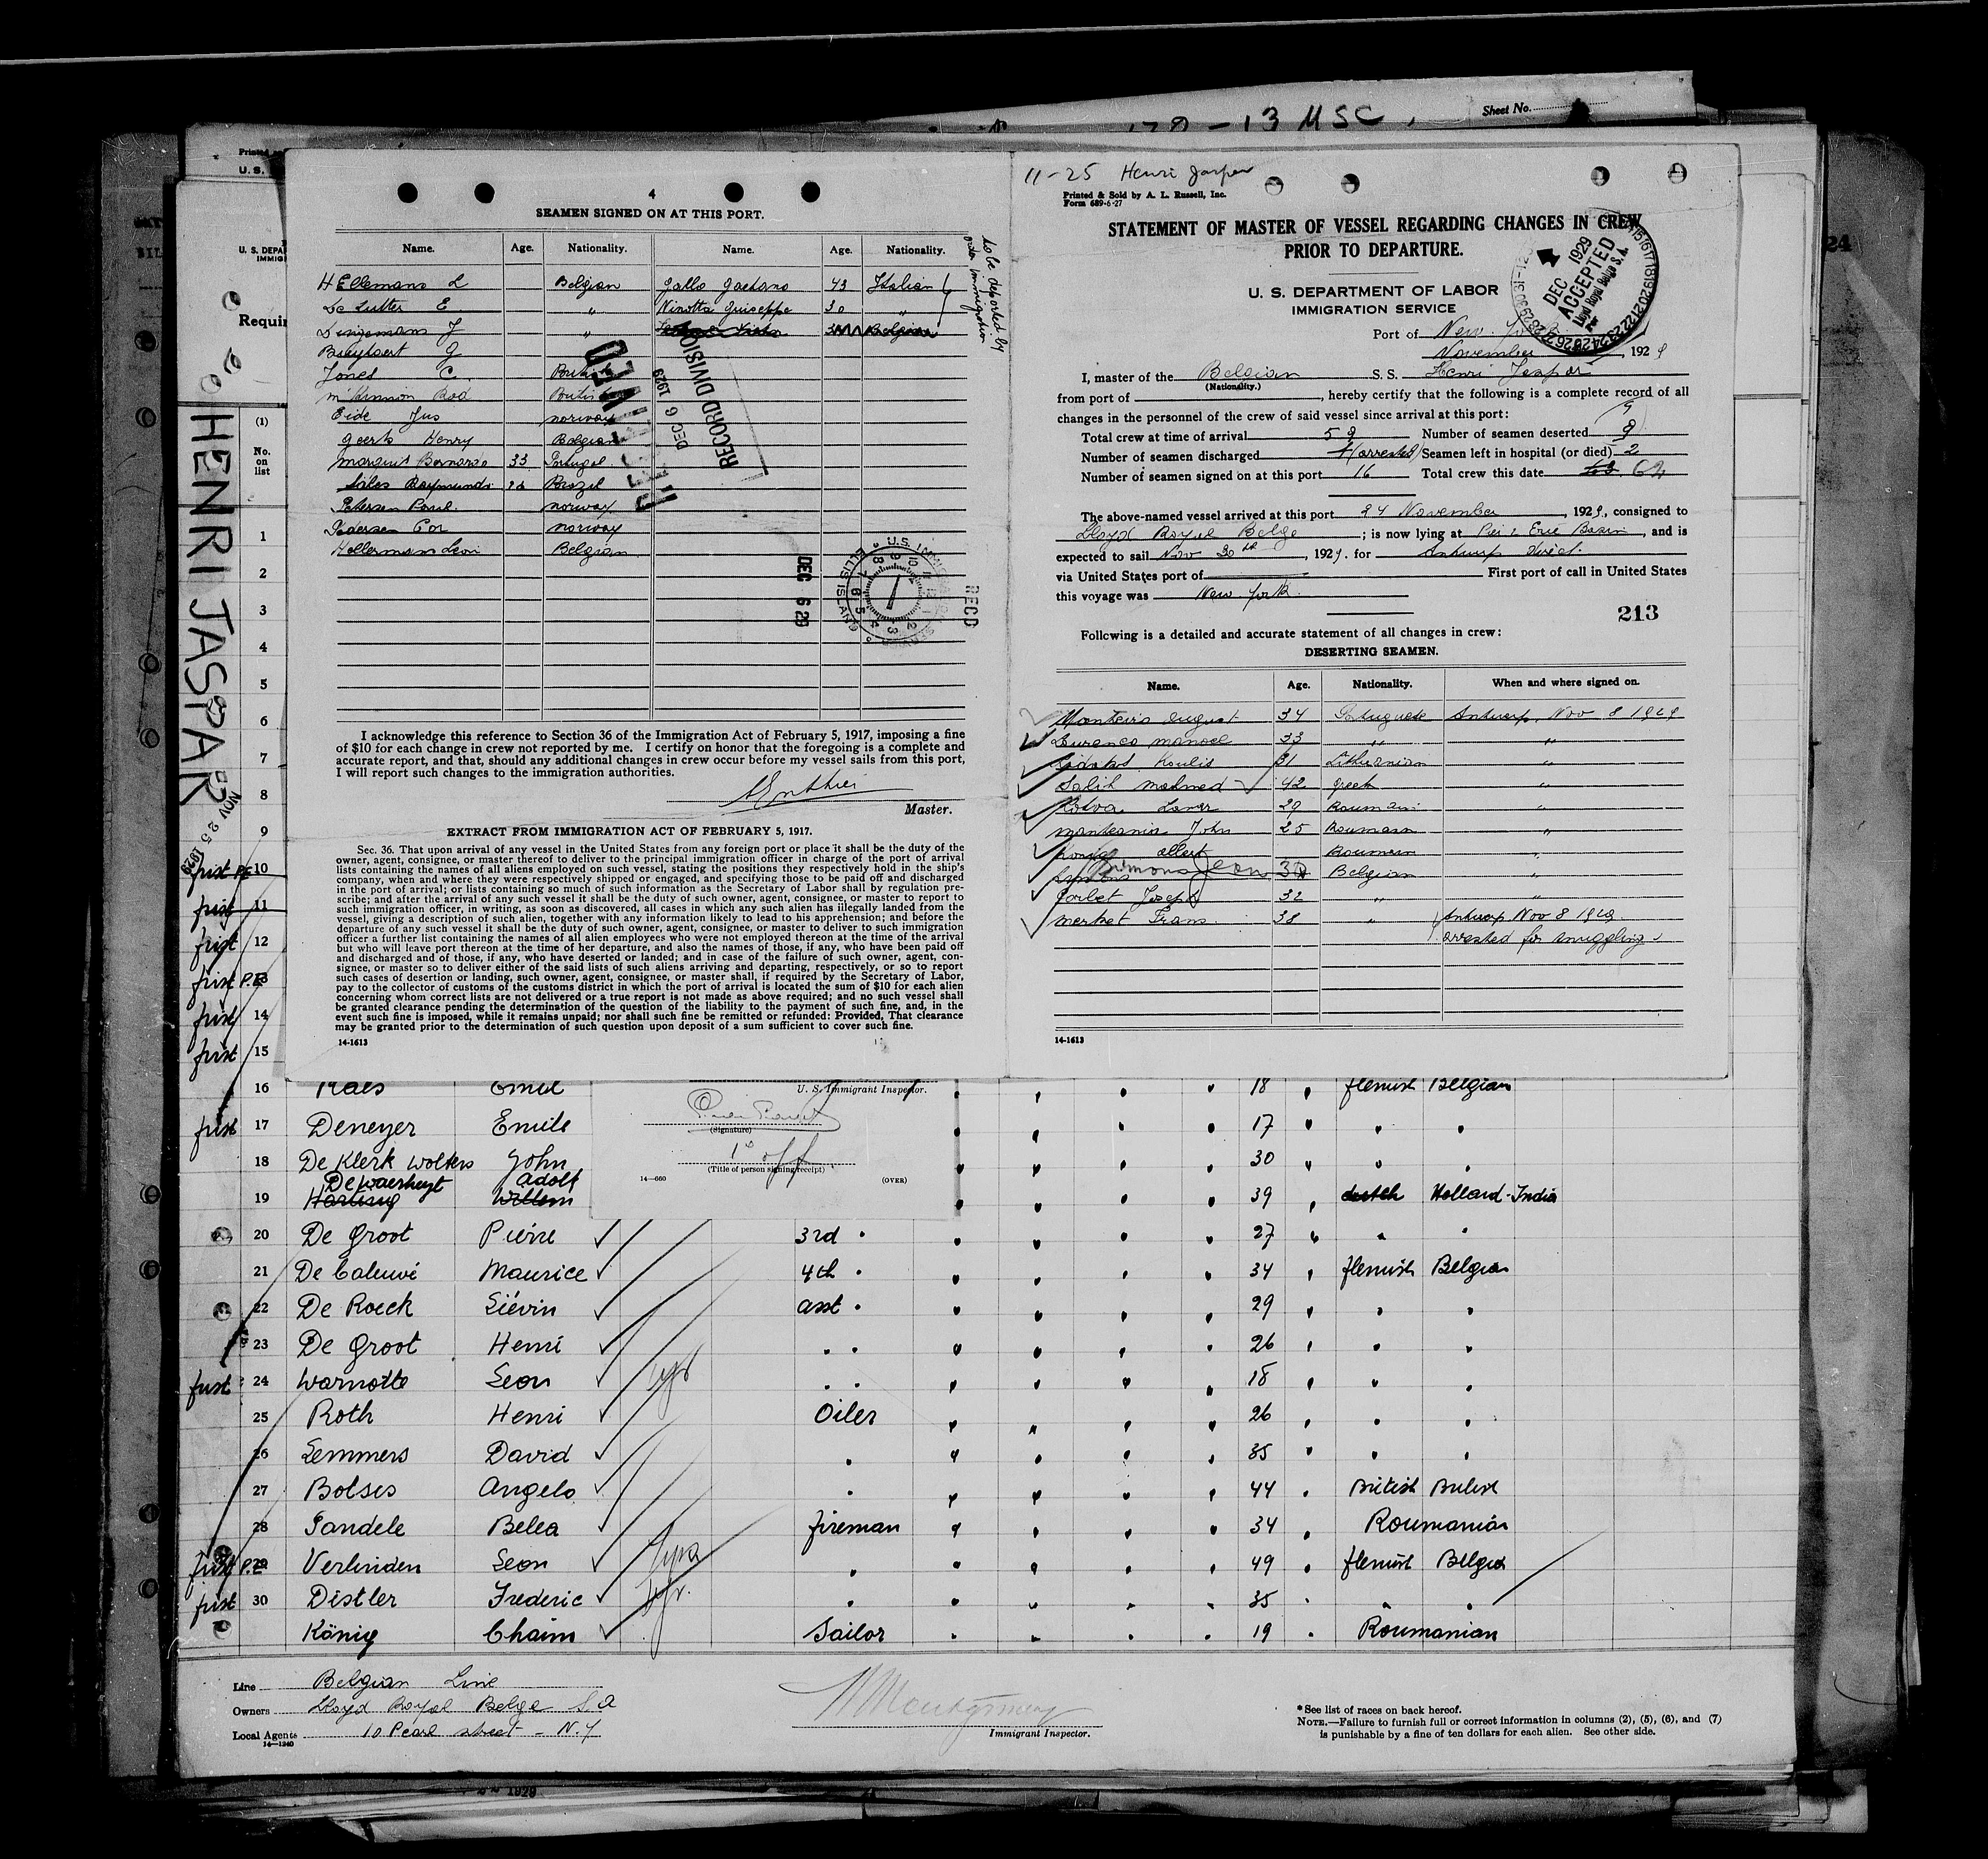 178-13 MSC.
Sheet No.
U. S.
U. S. DEPA
IMMIG
Requir
(1)
No.
on
list
HENRI JASPAR
NOV 25 1929
4
SEAMEN SIGNED ON AT THIS PORT.
Name. Age. Nationality. Name. Age. Nationality.
Hellemans L Belgian Gallo Gaetano 43 Italian
De Sutter E " Ninotta Guiseppe 30 "
Dingemans J "
G
Jones C. British
Rod British
Eide Jus norway
Geerts Henry Belgian
Marquis Bernardo 33 Portugal
Sales Raymundo Brazil
Petersen Paul norway
Pedersen Cor norway
Hellerman Leon Belgian
to be deported by
order immigration
RECEIVED
DEC 6 1929
RECORD DIVISION
DEC 6 29
U.S. IMMIGRATION SERVICE
ELLIS ISLAND
REC'D
I acknowledge this reference to Section 36 of the Immigration Act of February 5, 1917, imposing a fine
of $10 for each change in crew not reported by me. I certify on honor that the foregoing is a complete and
accurate report, and that, should any additional changes in crew occur before my vessel sails from this port,
I will report such changes to the immigration authorities.
Master.
EXTRACT FROM IMMIGRATION ACT OF FEBRUARY 5, 1917.
Sec. 36. That upon arrival of any vessel in the United States from any foreign port or place it shall be the duty of the
owner, agent, consignee, or master thereof to deliver to the principal immigration officer in charge of the port of arrival
lists containing the names of all aliens employed on such vessel, stating the positions they respectively hold in the ship's
company, when and where they were respectively shipped or engaged, and specifying those to be paid off and discharged
in the port of arrival; or lists containing so much of such information as the Secretary of Labor shall by regulation pre-
scribe; and after the arrival of any such vessel it shall be the duty of such owner, agent, consignee, or master to report to
such immigration officer, in writing, as soon as discovered, all cases in which any such alien has illegally landed from the
vessel, giving a description of such alien, together with any information likely to lead to his apprehension; and before the
departure of any such vessel it shall be the duty of such owner, agent, consignee, or master to deliver to such immigration
officer a further list containing the names of all alien employees who were not employed thereon at the time of the arrival
but who will leave port thereon at the time of her departure, and also the names of those, if any, who have been paid off
and discharged and of those, if any, who have deserted or landed; and in case of the failure of such owner, agent, con-
signee, or master so to deliver either of the said lists of such aliens arriving and departing, respectively, or so to report
such cases of desertion or landing, such owner, agent, consignee, or master shall, if required by the Secretary of Labor,
pay to the collector of customs of the customs district in which the port of arrival is located the sum of $10 for each alien
concerning whom correct lists are not delivered or a true report is not made as above required; and no such vessel shall
be granted clearance pending the determination of the question of the liability to the payment of such fine, and, in the
event such fine is imposed, while it remains unpaid; nor shall such fine be remitted or refunded: Provided, That clearance
may be granted prior to the determination of such question upon deposit of a sum sufficient to cover such fine.
14-1613
11-25 Henri Jaspar
Printed & Sold by A. L. Russell, Inc.
Form 689-6-27
STATEMENT OF MASTER OF VESSEL REGARDING CHANGES IN CREW
PRIOR TO DEPARTURE.
U. S. DEPARTMENT OF LABOR
IMMIGRATION SERVICE
DEC 1929
ACCEPTED
Lloyd Royal Belge S.A.
Port of New York
November, 1929
I, master of the Belgian S. S. Henri Jaspar
(Nationality.)
from port of , hereby certify that the following is a complete record of all
changes in the personnel of the crew of said vessel since arrival at this port:
Total crew at time of arrival 59 Number of seamen deserted 9
Number of seamen discharged 1 (arrested) Seamen left in hospital (or died) 2
Number of seamen signed on at this port 16 Total crew this date 63 62
The above-named vessel arrived at this port 24 November, 1929, consigned to
Lloyd Royal Belge; is now lying at Pier 2 Erie Basin, and is
expected to sail Nov 30th, 1929. for Antwerp direct.
via United States port of First port of call in United States
this voyage was New York.
213
Following is a detailed and accurate statement of all changes in crew:
DESERTING SEAMEN.
Name. Age. Nationality. When and where signed on.
Monteiro August 34 Portuguese Antwerp. Nov 8 1929
Lurenco Manoel 33 " "
Koulis 31 Lithuanian "
Salih Mehmed 42 Greek "
29 Roumani "
John 25 Roumain "
König Albert Roumain "
Simons Jean 30 Belgian "
Corbet Joseph 32 " "
Merket Frans. 38 " Antwerp Nov 8 1929
arrested for smuggling.
14-1613
1
2
3
4
5
6
7
8
9
first P.E 10
first 11
first 12
first P.E 13
first 14
first 15
16 Raes Emil 18 flemish Belgian
U. S. Immigrant Inspector.
(Signature)
1st off
(Title of person signing receipt)
14—660 (OVER)
first 17 Deneyer Emile 17 " "
18 De Klerk Wolters John 30 " "
De Waerheyt Adolf
19 Hartung Willem 39 dutch Holland-India
20 De Groot Pierre 3rd " 27 " "
21 De Caluwé Maurice 4th " 34 flemish Belgian
22 De Roeck Liévin asst " 29 " "
23 De Groot Henri " " 26 " "
first 24 Warnotte Leon " " 18 " "
25 Roth Henri Oiler 26 " "
26 Lemmers David " 35 " "
27 Botsis Angelo " 44 British British
28 Sandele Belea fireman 34 Roumanian
first P.E 29 Verlinden Leon " 49 flemish Belgia
first 30 Distler Frederic " 35 " "
König Chaim Sailor 19 Roumanian
Line Belgian Line
Owners Lloyd Royal Belge S.A
Local Agents 10 Pearl street - N.Y
14—1240
Montgomery
Immigrant Inspector.
*See list of races on back hereof.
NOTE.—Failure to furnish full or correct information in columns (2), (5), (6), and (7)
is punishable by a fine of ten dollars for each alien. See other side.
1929